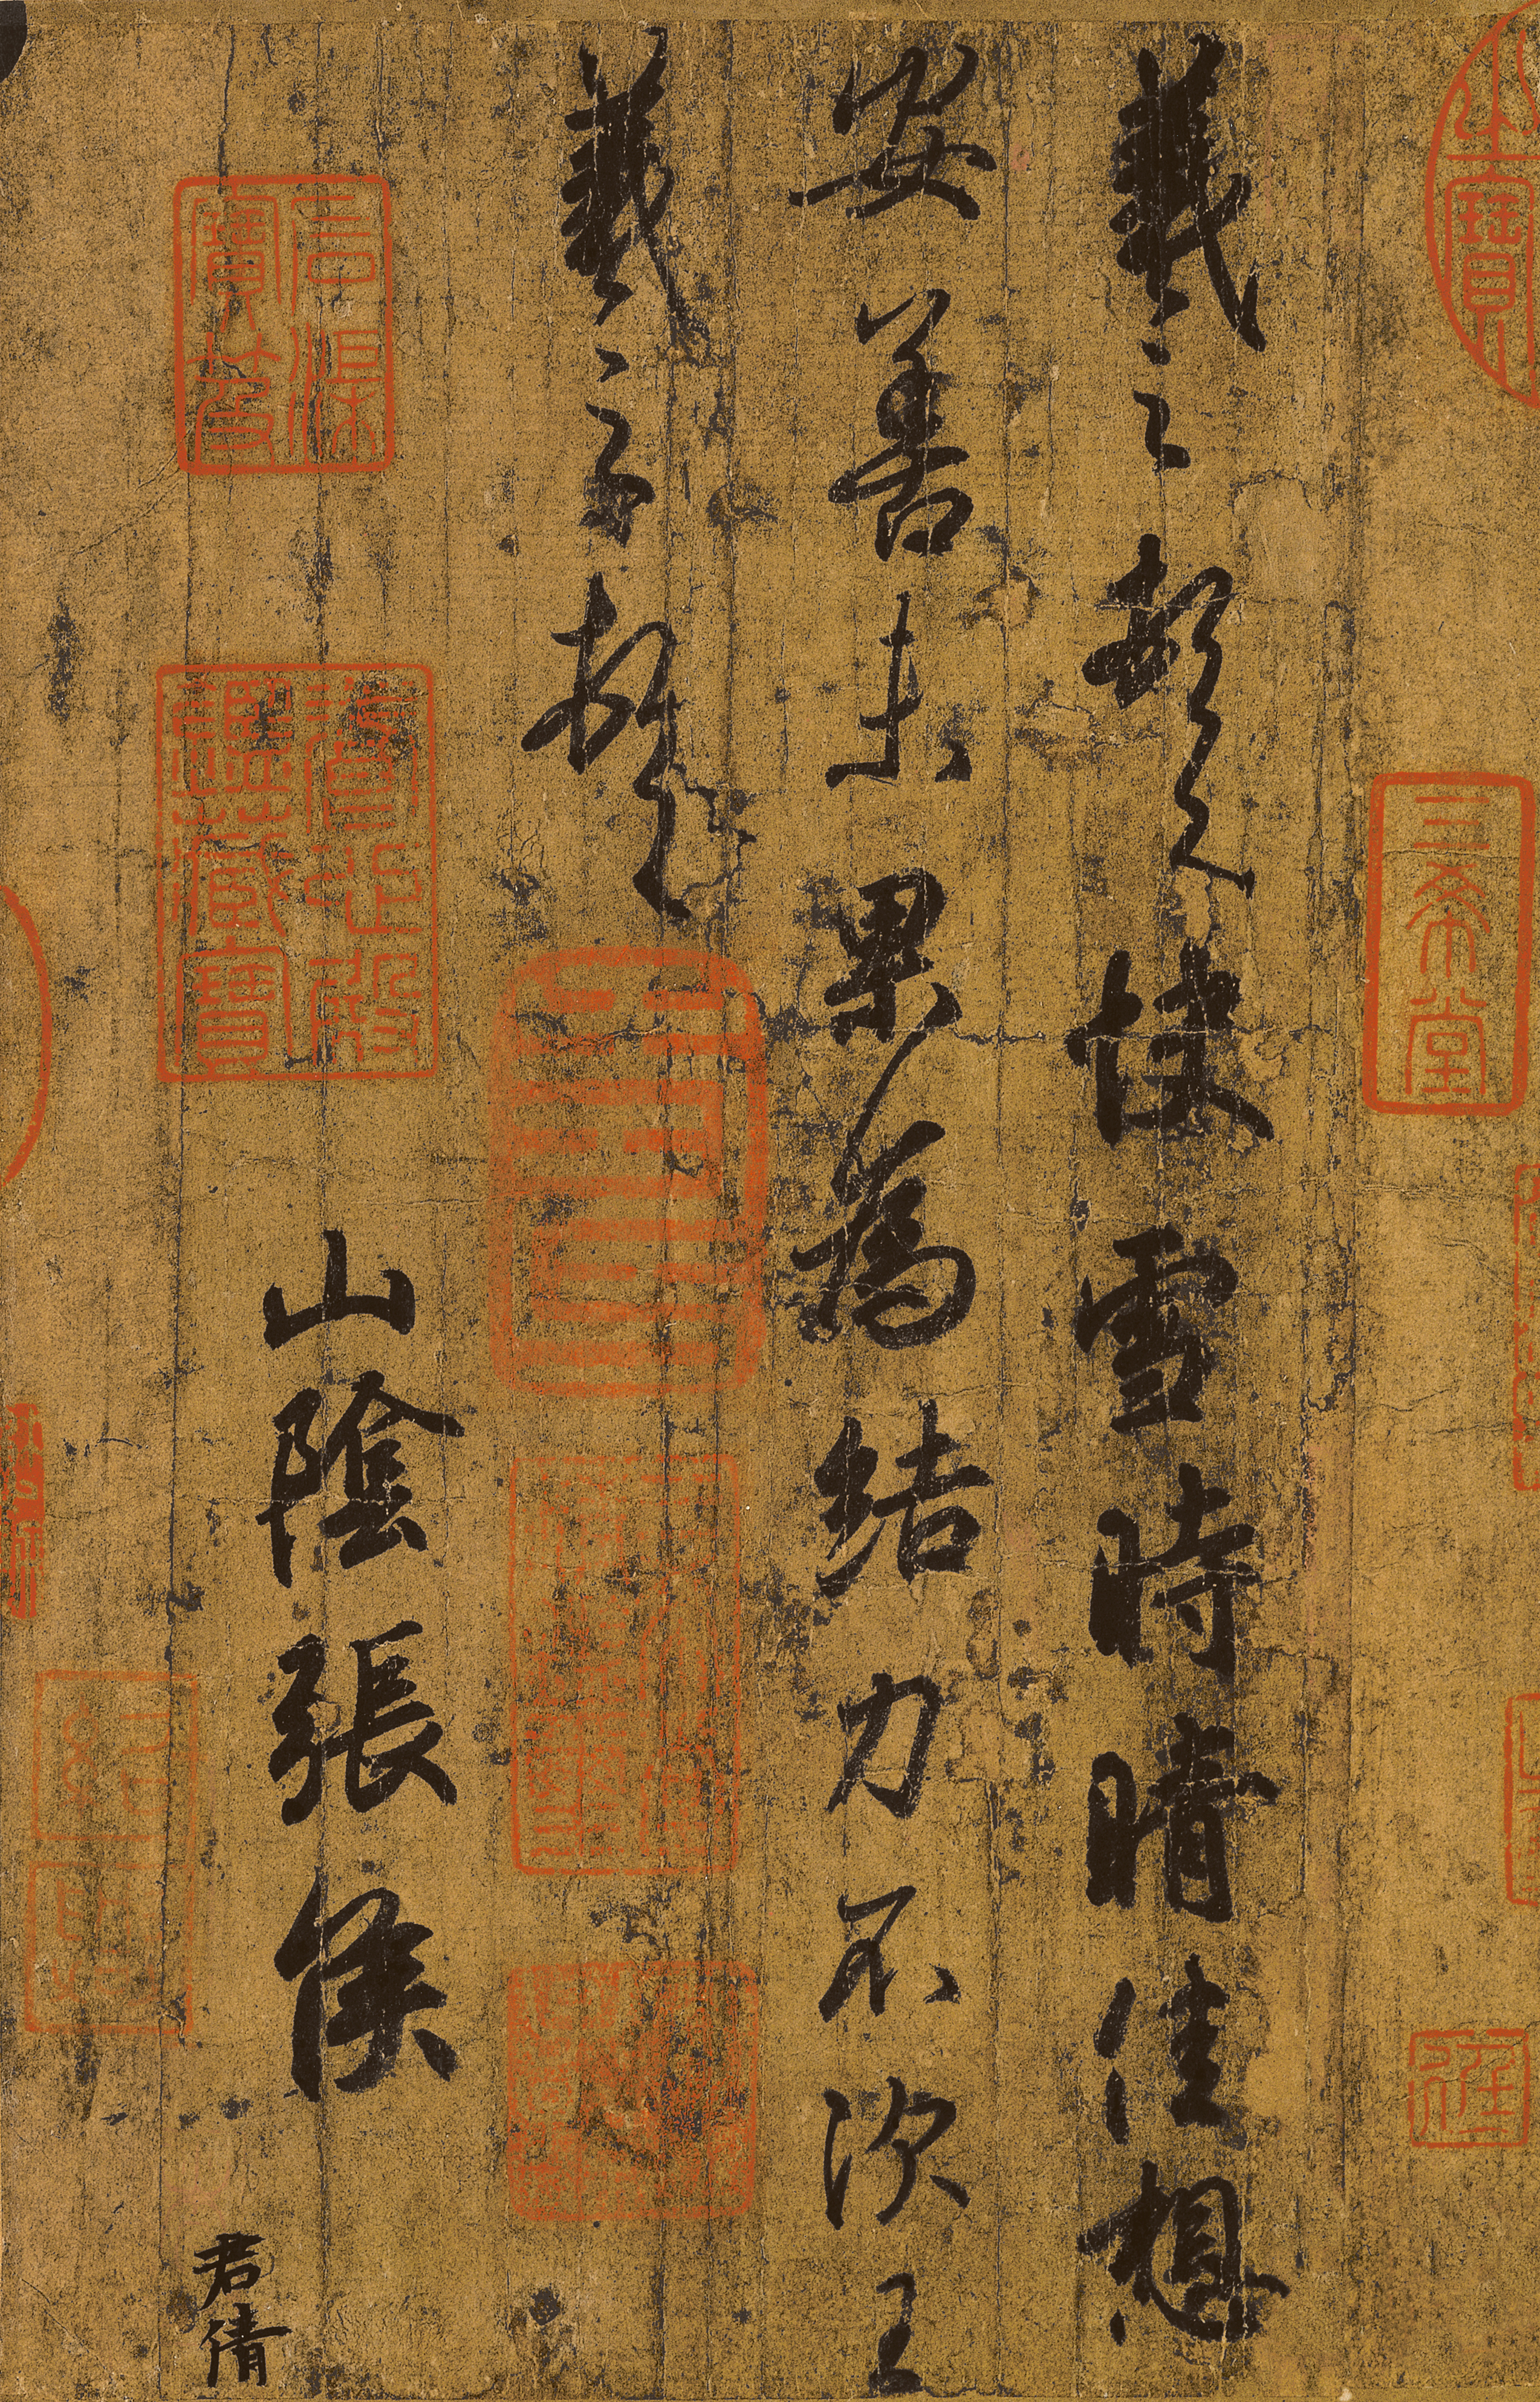 三希堂
羲之頓首快雪時晴佳想
安善未果為結力不次王
羲之頓首
山陰張侯
石渠寶笈
養心殿鑑藏寶
君倩